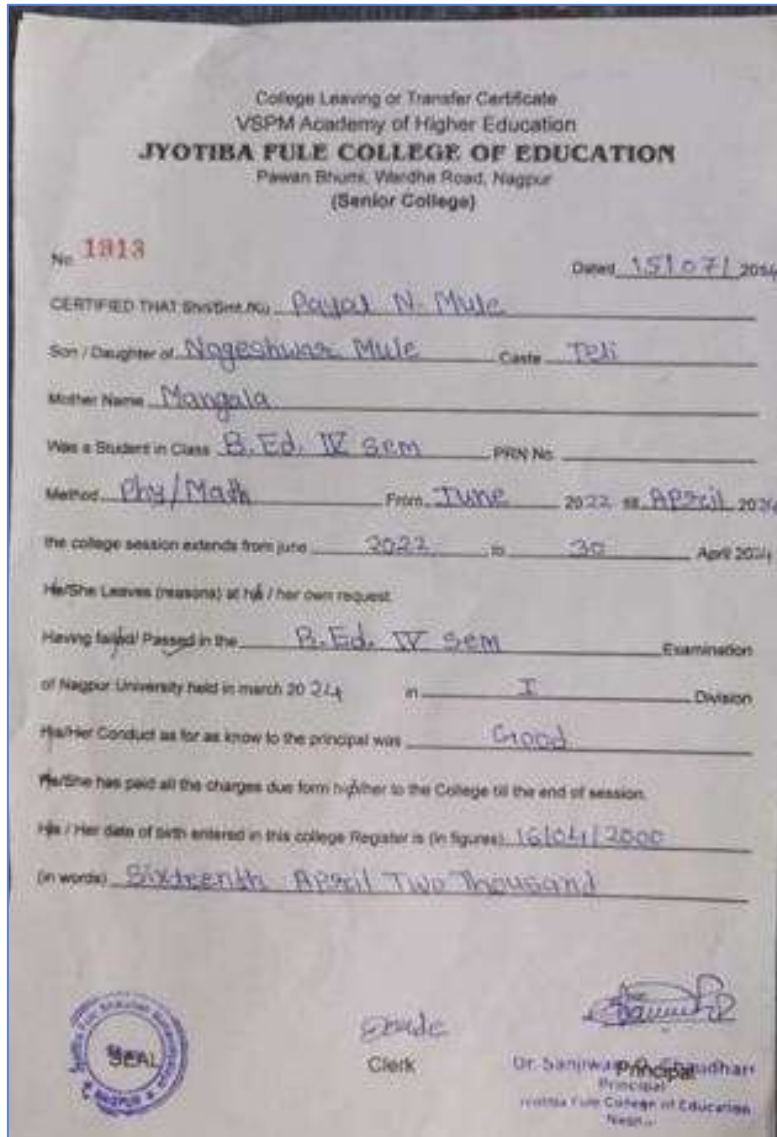 College Leaving or Transfer Certificate
VSPM Academy of Higher Education
JYOTIBA FULE COLLEGE OF EDUCATION
Pawan Bhumi, Wardha Road, Nagpur
(Senior College)
No. 1913
Dated 15/07/2024
CERTIFIED THAT Shri/Smt./Ku. Payal N. Mule
Son / Daughter of Nageshwar Mule Caste Teli
Mother Name Mangala
Was a Student in Class B.Ed. IV Sem PRN No.
Method Phy/Math From June 2022 till April 2024
the college session extends from june 2022 to 30 April 2024
He/She Leaves (reasons) at his / her own request
Having failed/ Passed in the B.Ed. IV Sem Examination
of Nagpur University held in march 2024 in I Division
His/Her Conduct as for as know to the principal was Good
He/She has paid all the charges due form his/her to the College till the end of session.
His / Her date of birth entered in this college Register is (in figures) 16/04/2000
(in words) Sixteenth April Two Thousand
SEAL
NAGPUR
Clerk
Principal
Dr. Chaudhari
Principal
Jyotiba Fule College of Education
Nagpur